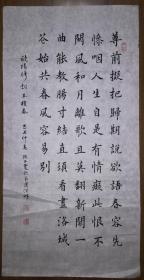 尊前擬把歸期說欲語春容先
惨咽人生自是有情癡此恨不
關風和月離歌且莫翻新闋一
曲能教腸寸結直須看盡洛城
花始共春風容易别
歐陽修詞玉樓春